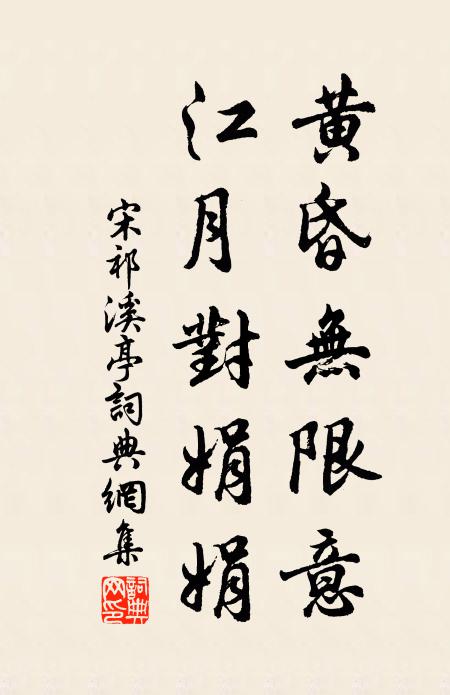 黃昏無限意
江月對娟娟
宋祁溪亭詞典網集
詞典网印